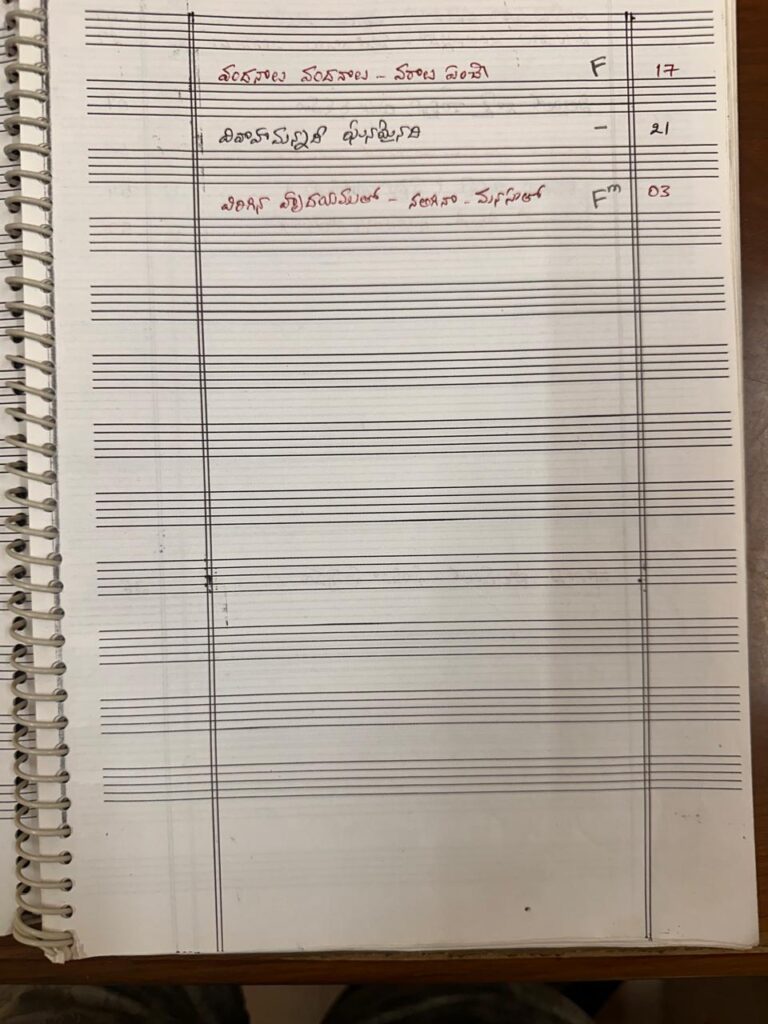 వందనాలు వందనాలు - వరాలు పంచే F 17
వివాహమన్నది ఘనమైనది - 21
విరిగిన హృదయముతో - నలిగిన - మనసుతో Fm 03